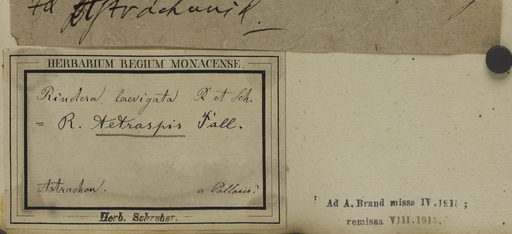 ad Astrachanik.
HERBARIUM REGIUM MONACENSE.
Rindera laevigata R et Sch.
= R. tetraspis Pall.
Astrachan. a Pallasio?
Herb. Schreber.
Ad A. Brand missa IV. ;
remissa VIII.1915.